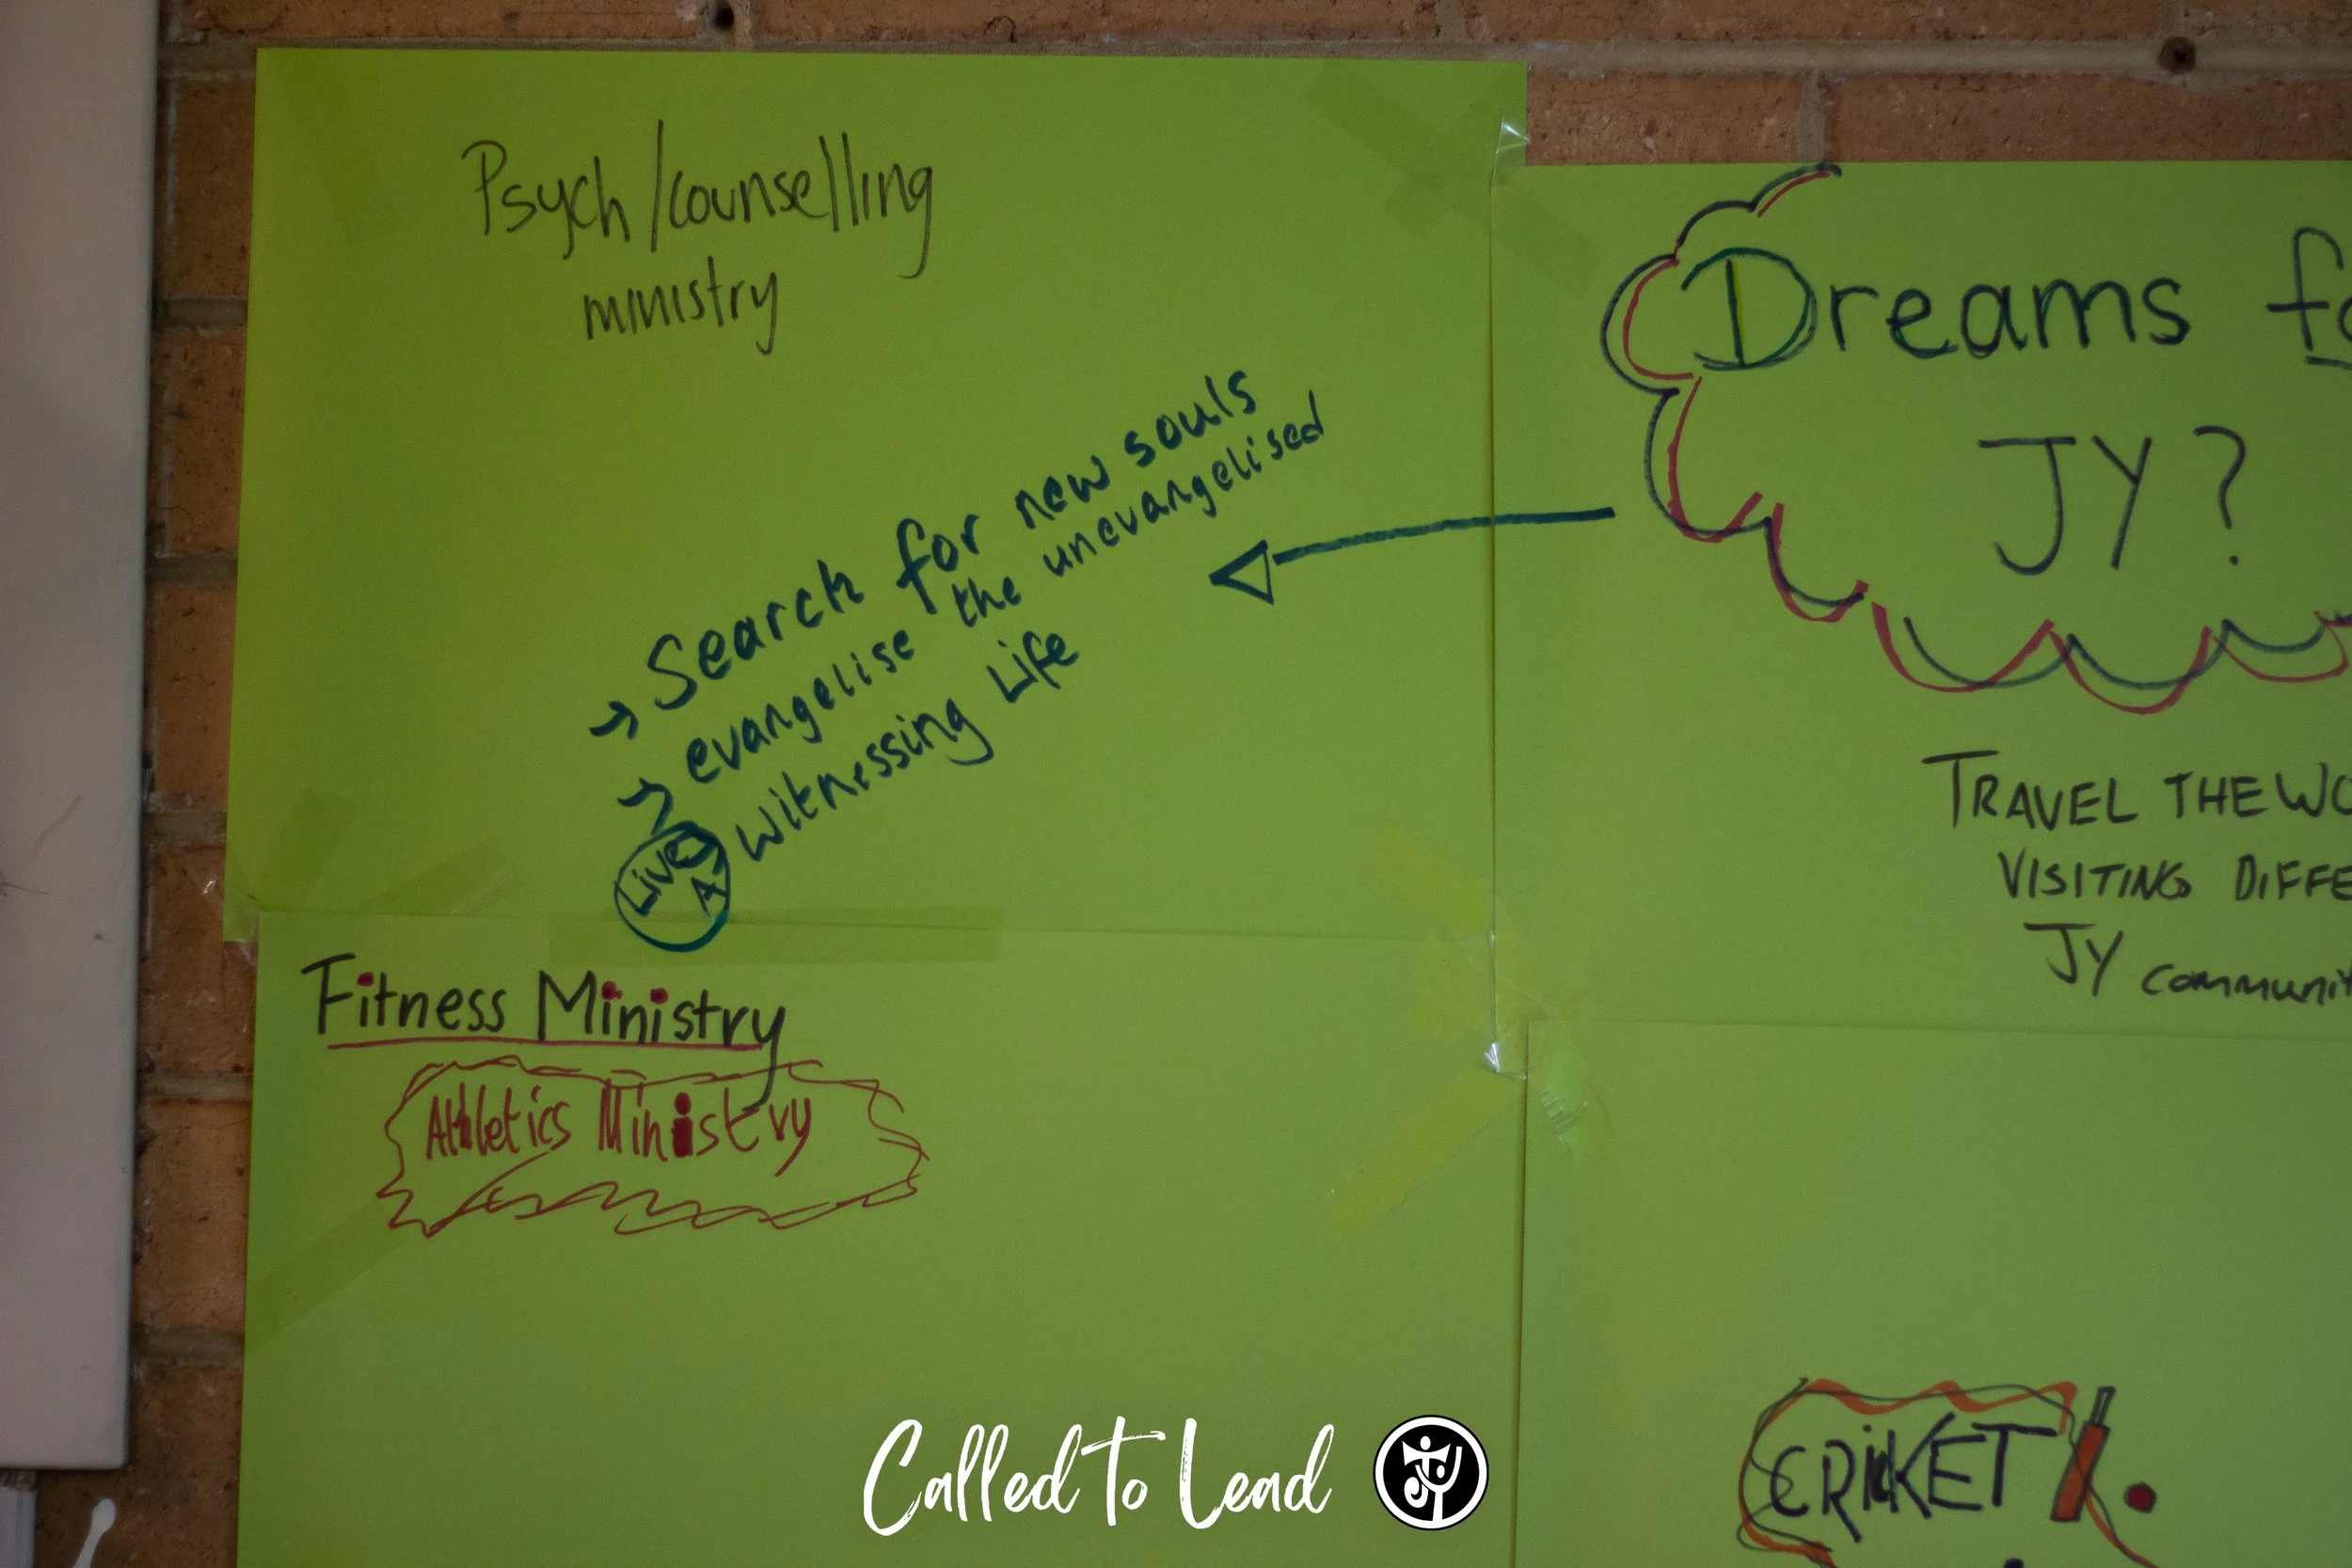 Psych/counselling
ministry
Dreams
JY?
→ Search for new souls
→ evangelise the unevangelised
Live A witnessing Life
TRAVEL THE
VISITING
JY
Fitness Ministry
Athletics Ministry
CRiCKET
Called To Lead